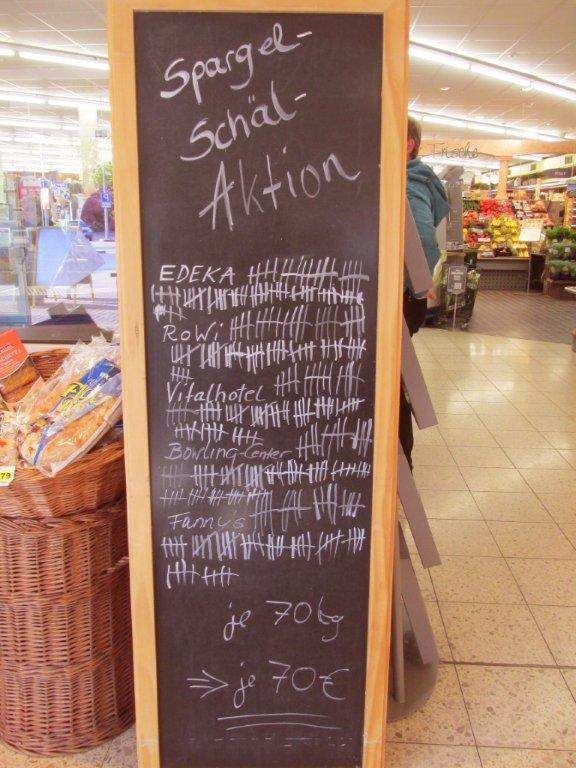 Spargel-
Schäl-
Aktion
EDEKA
RoWi
Vitalhotel
Bowling-Center
Fanny's
je 70kg
⇒ je 70€
Frische
79